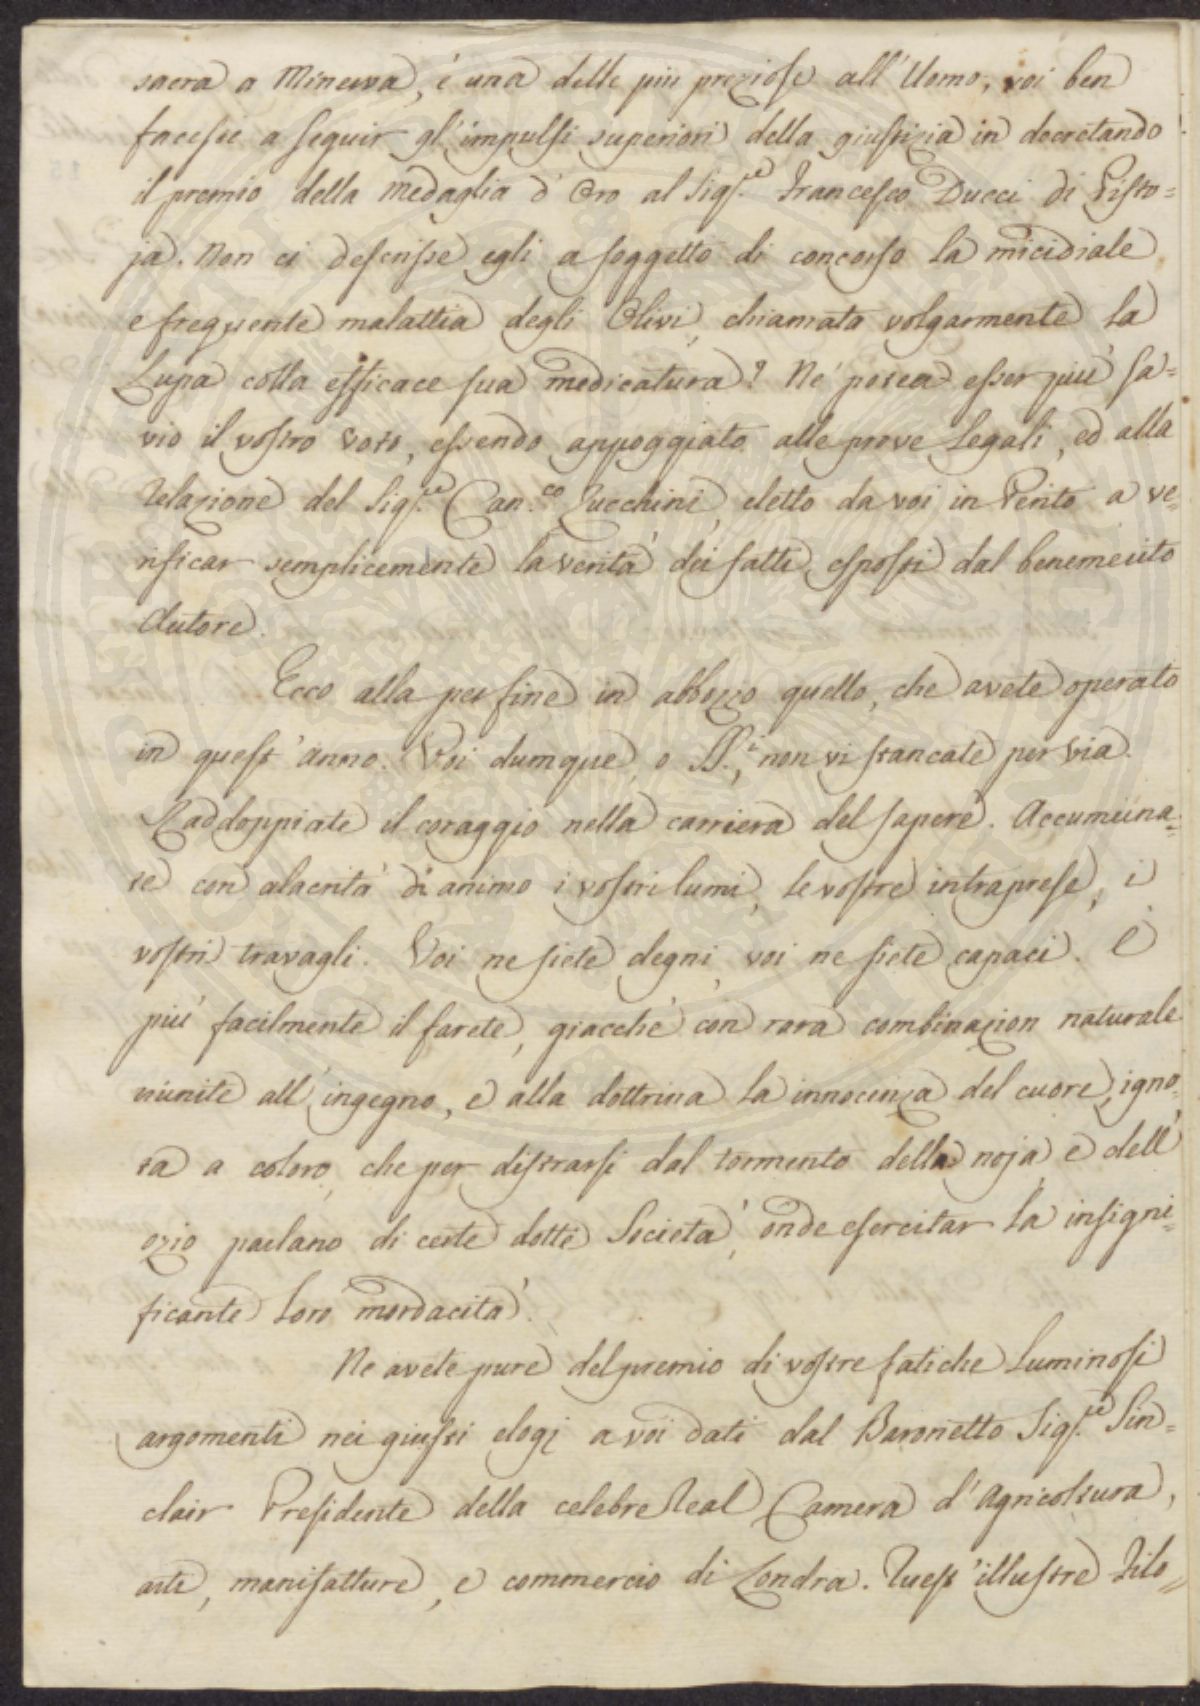 sacra a Minerva, è una delle più preziose all'Uomo, voi ben
faceste a seguir gl'impulsi superiori della giustizia in decretando
il premio della Medaglia d'Oro al Sig.re Francesco Ducci di Pisto=
ja. Non ci descrisse egli a soggetto di concorso la micidiale
e frequente malattia degli Olivi, chiamata volgarmente la
Lupa colla efficace sua medicatura? Né potea esser più sa=
vio il vostro voto, essendo appoggiato alle prove legali, ed alla
Relazione del Sig.re Can.co Zucchini, eletto da voi in Perito a ve=
rificar semplicemente la verità dei fatti esposti dal benemerito
Autore.
Ecco alla per fine in abbozzo quello, che avete operato
in quest'anno. Voi dumque, o SS.i, non vi stancate per via.
Raddoppiate il coraggio nella carriera del sapere. Accumuna=
te con alacrità di animo i vostri lumi, le vostre intraprese, i
vostri travagli. Voi ne siete degni, voi ne siete capaci. E
più facilmente il farete, giacché con rara combinazion naturale
riunite all'ingegno, e alla dottrina la innocenza del cuore, igno=
ta a coloro, che per distrarsi dal tormento della noja, e dell'
ozio parlano di certe dotte Società, onde esercitar la insigni=
ficante loro mordacità.
Ne avete pure del premio di vostre fatiche luminosi
argomenti nei giusti elogj a voi dati dal Baronetto Sig.re Sin=
clair Presidente della celebre Real Camera d'Agricoltura,
arti, manifatture, e commercio di Londra. Quest'illustre Filo=